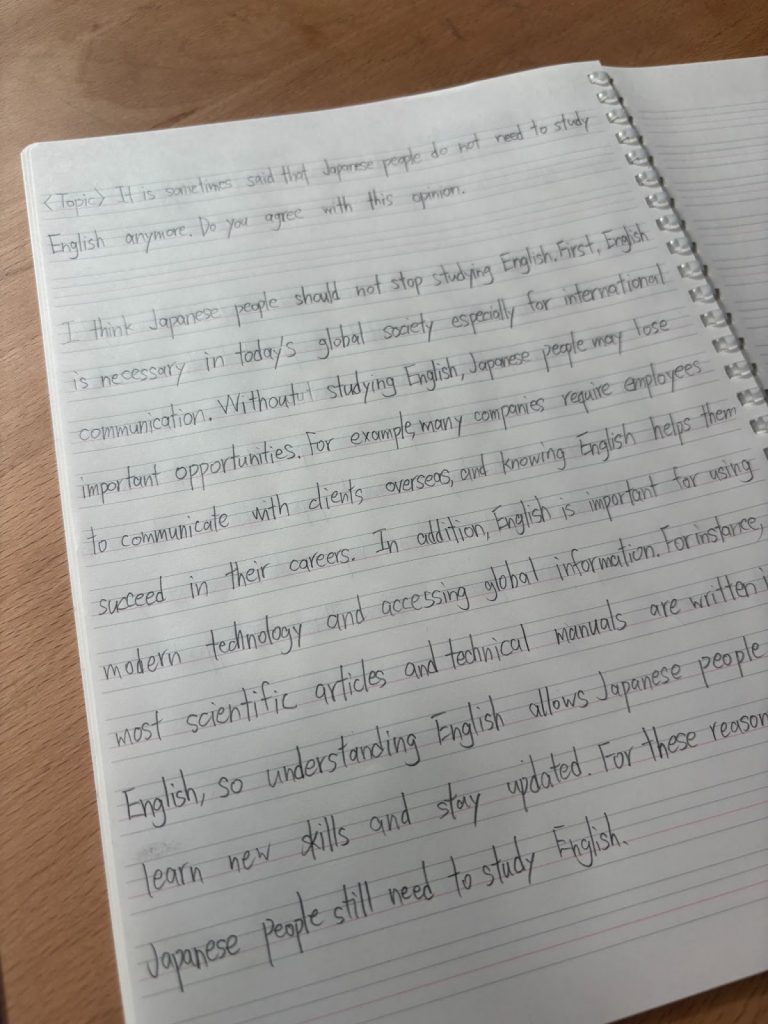 <Topic> It is sometimes said that Japanese people do not need to study
English anymore. Do you agree with this opinion.
I think Japanese people should not stop studying English. First, English
is necessary in today's global society especially for international
communication. Without studying English, Japanese people may lose
important opportunities. For example, many companies require employees
to communicate with clients overseas, and knowing English helps them
succeed in their careers. In addition, English is important for using
modern technology and accessing global information. For instance,
most scientific articles and technical manuals are written
English, so understanding English allows Japanese people
learn new skills and stay updated. For these reason
Japanese people still need to study English.